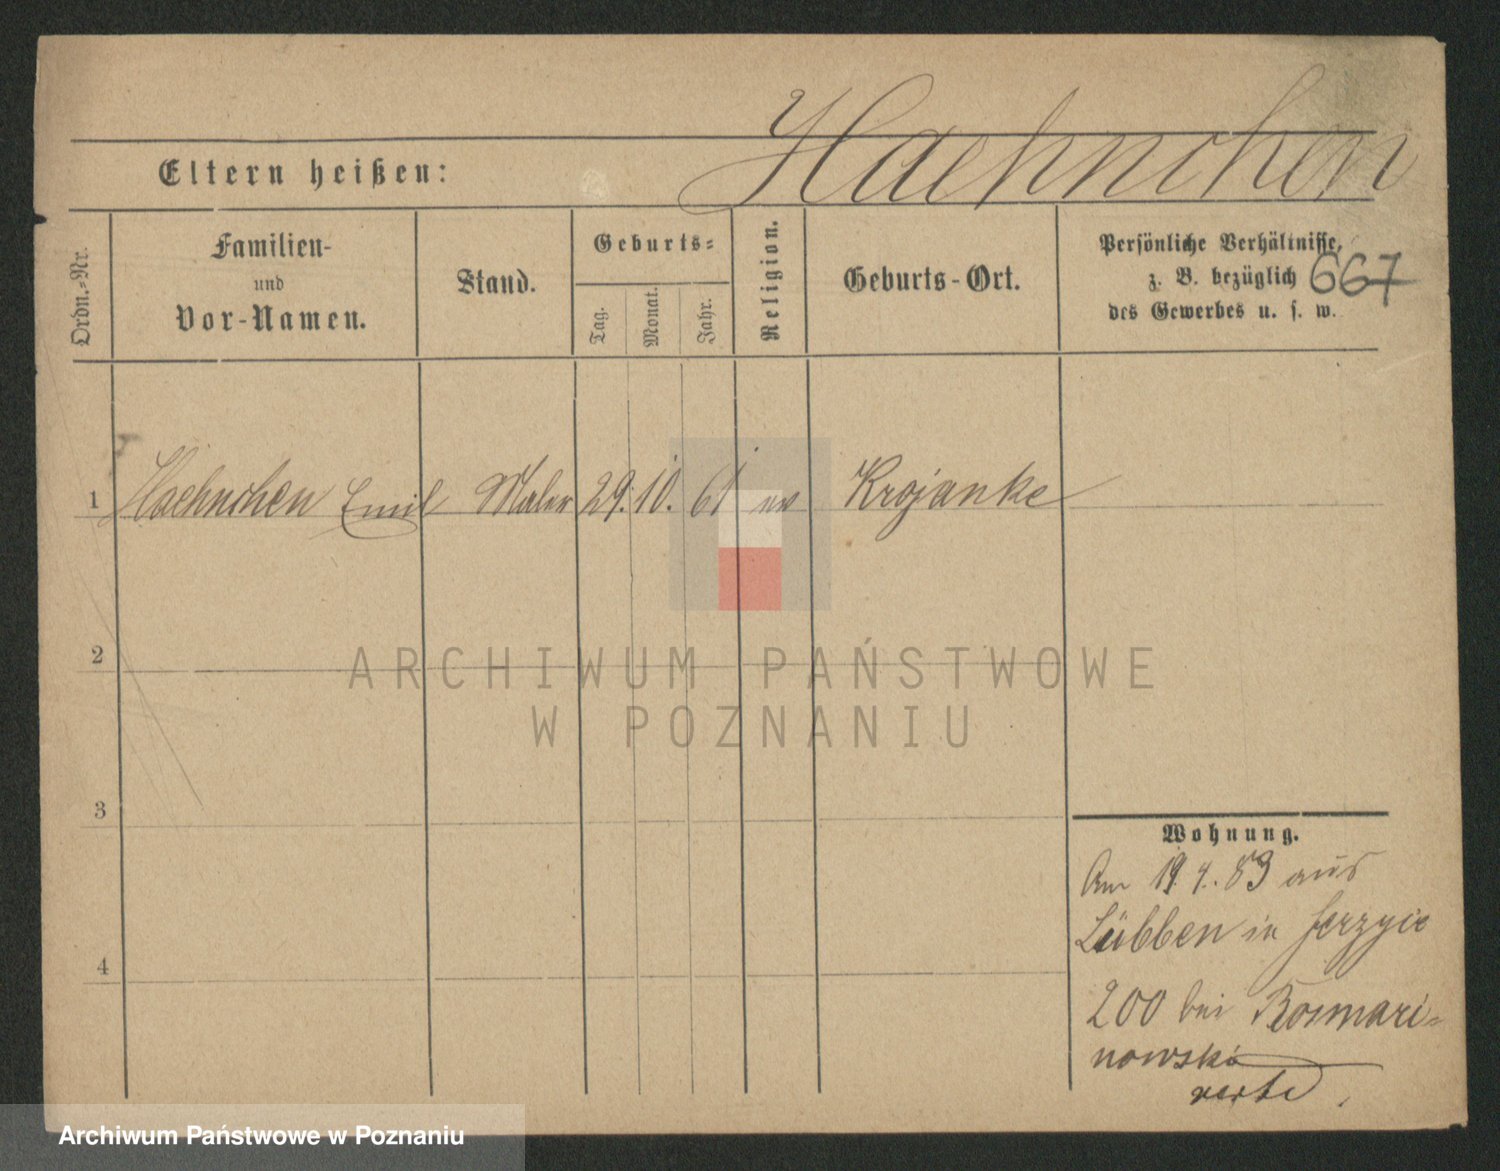 Haehnchen
Eltern heißen:
Ordn.-Nr.
Familien-
und
Vor-Namen.
Stand.
Geburts-
Tag.
Monat.
Jahr.
Religion.
Geburts-Ort.
Persönliche Verhältnisse,
z. B. bezüglich
des Gewerbes u. s. w.
667
1 Haehnchen Emil Maler 29. 10. 61 ev Krojanke
2
3
4
Wohnung.
Am 19. 4. 83 aus
Lübben in Jerzyce
200 bei Rosmari-
nowski
verte
ARCHIWUM PAŃSTWOWE
W POZNANIU
Archiwum Państwowe w Poznaniu